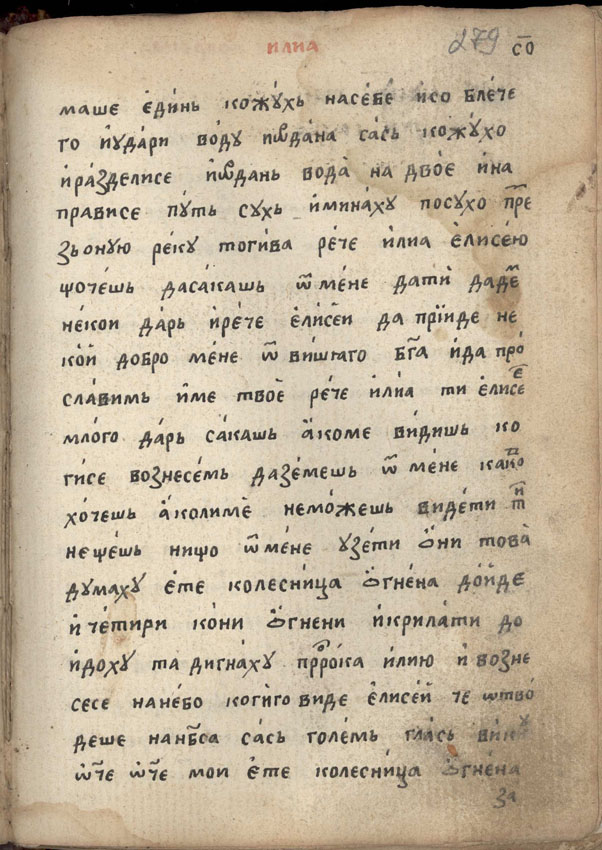 илиа 279 со҃
маше еди́нь кожу́хь насе́бѐ исо бле́че
го иꙋдари во́дꙋ иѡ҆рда́на са́сь кожꙋ́хо
ира́зделисе иѡ҆рда́нь вода̀ на дво́е и҆на
прависе пꙋ́ть сꙋхь имина́хꙋ посꙋ́хо пре
зьонꙋ́ю ре́кꙋ тоги́ва ре́че и҆лиа е҆лисе́ю
що́чешь даса́кашь ѿ ме́не да́ти даде́м
не́кои да́рь и҆ре́че е҆лисе́и да прїи́де не
ко́й добро̀ ме́не ѿ ви́шнаго бг҃а и҆да про
сла́вимь и҆ме твоѐ ре́че и҆лиа ти е҆лисе е
мло́го да́рь са́кашь а҆коме ви́дишь ко
ги́се вознесе́мь дазе́мешь ѿ ме́не како
хо́чешь а҆колимѐ немо́жешь виде́ти ти
неще́шь нищо ѿ ме́не ꙋзе́ти ѻ҆ни това̀
дꙋ́махꙋ е҆те колесни́ца ѻ҆гне́на до́иде
и҆ че́тири ко́ни ѻ҆гнени и҆крила́ти до
и҆дохꙋ та дигна́хꙋ прⷪ҇рока илию̀ и҆ возне
сесе нане́бо коги́го виде е҆лисе́й че ѡтво́
деше нанб҃са са́сь голе́мь гла́сь вика
ѡ҆́ч҃е ѡ҆́ч҃е мои е҆те колесни́ца ѻ҆гне́на
за